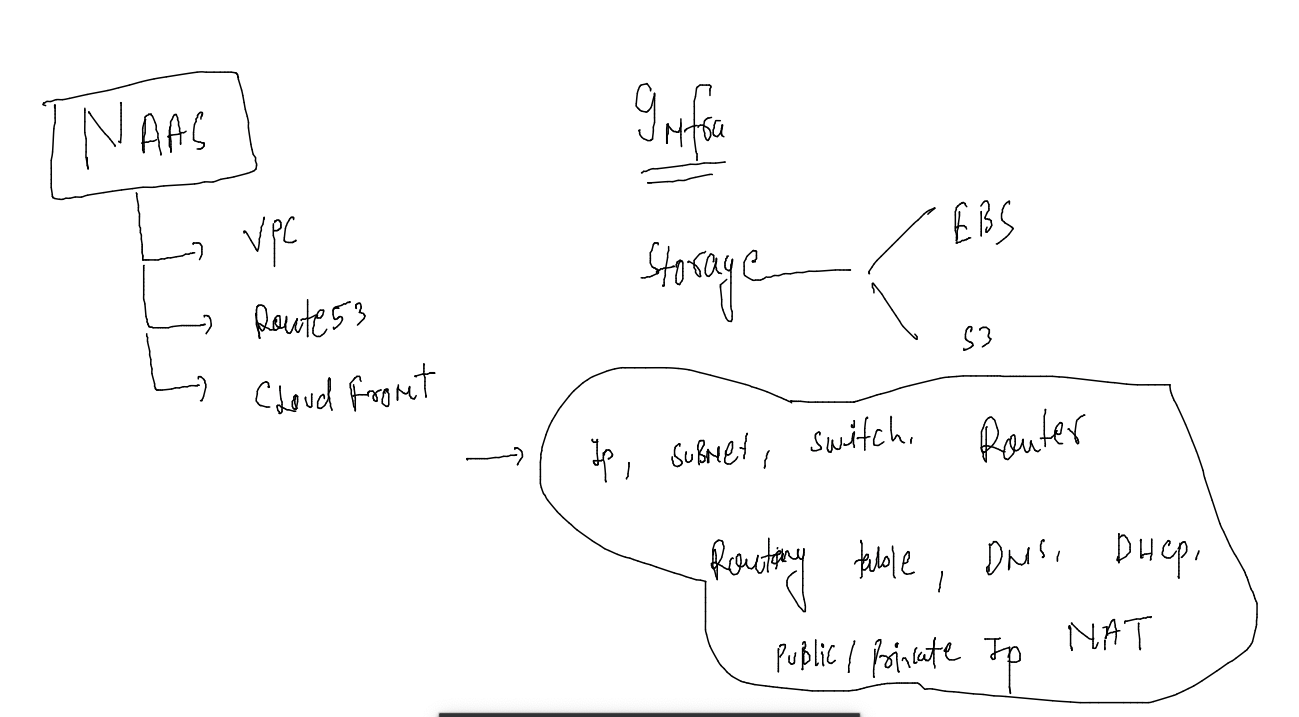 NAAS
VPC
Route53
Cloud Front
Infra
Storage
EBS
S3
Ip, subnet, switch. Router
Routing table, DNS. DHCP.
Public/Private Ip NAT